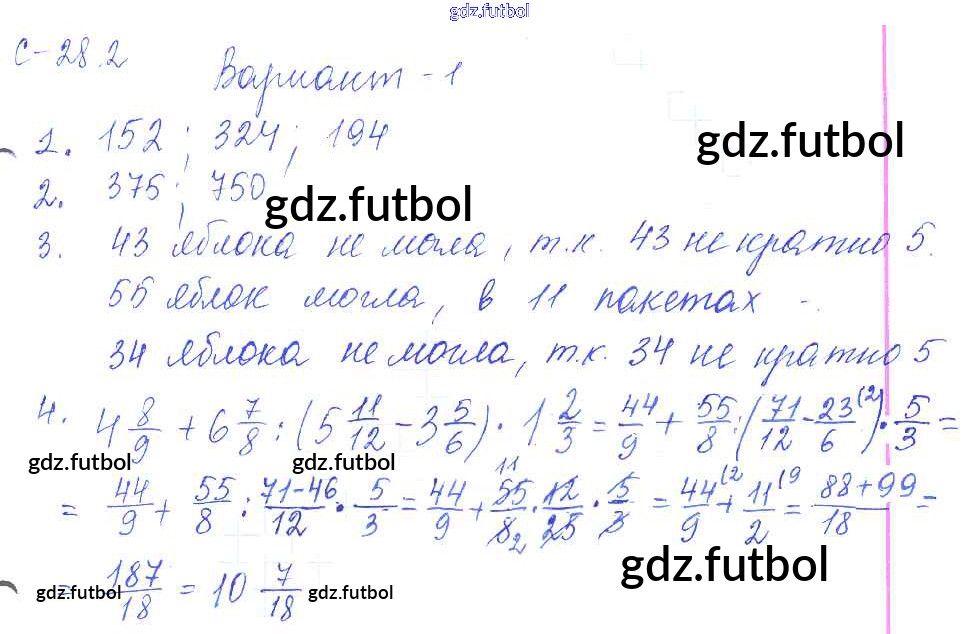 gdz.futbol
С-28.2
Вариант - 1
1. 152 ; 324 ; 194
gdz.futbol
2. 375 ; 750
gdz.futbol
3. 43 яблока не могла, т.к. 43 не кратно 5.
55 яблок могла, в 11 пакетах.
34 яблока не могла, т.к. 34 не кратно 5
4. 4 8/9 + 6 7/8 : (5 11/12 - 3 5/6) · 1 2/3 = 44/9 + 55/8 : (71/12 - 23/6 (2) · 5/3 =
gdz.futbol gdz.futbol
= 44/9 + 55/8 : 71-46/12 · 5/3 = 44/9 + 55 11/8 2 · 12/25 · 5/3 = 44/9 (2 + 11/2 (9 = 88+99/18 =
gdz.futbol
= 187/18 = 10 7/18
gdz.futbol gdz.futbol